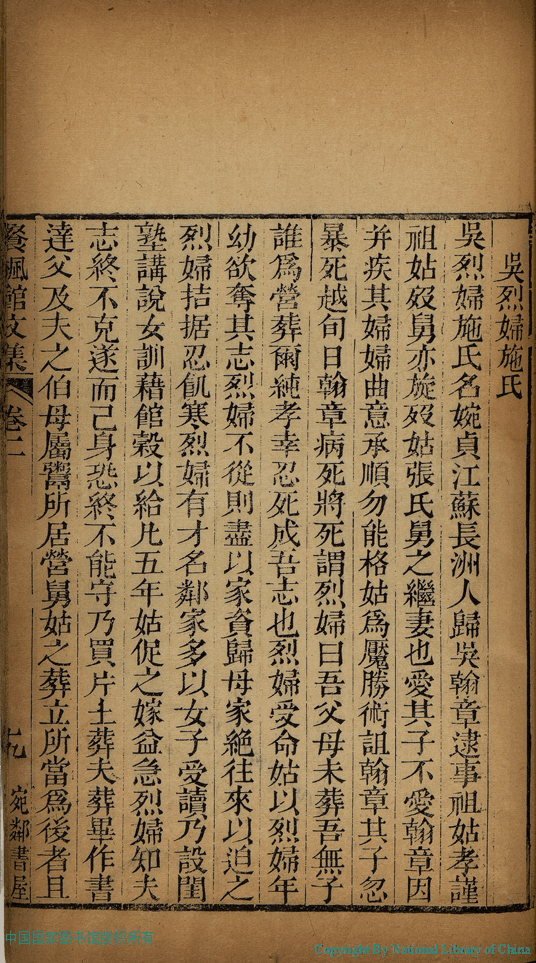 吳烈婦施氏
吳烈婦施氏名婉貞江蘇長洲人歸吳翰章逮事祖姑孝謹
祖姑歿舅亦旋歿姑張氏舅之繼妻也愛其子不愛翰章因
并疾其婦婦曲意承順勿能格姑爲魘勝術詛翰章其子忽
暴死越旬日翰章病死將死謂烈婦曰吾父母未葬吾無子
誰爲營葬爾純孝幸忍死成吾志也烈婦受命姑以烈婦年
幼欲奪其志烈婦不從則盡以家貧歸母家絶往來以迫之
烈婦拮据忍飢寒烈婦有才名鄰家多以女子受讀乃設閨
塾講說女訓藉館穀以給凡五年姑促之嫁益急烈婦知夫
志終不克遂而己身恐終不能守乃買片土葬夫葬畢作書
達父及夫之伯母屬鬻所居營舅姑之葬立所當爲後者且
餐楓館文集 卷二 十九 宛鄰書屋
中国国家图书馆藏版所有
Copyright By National Library of China